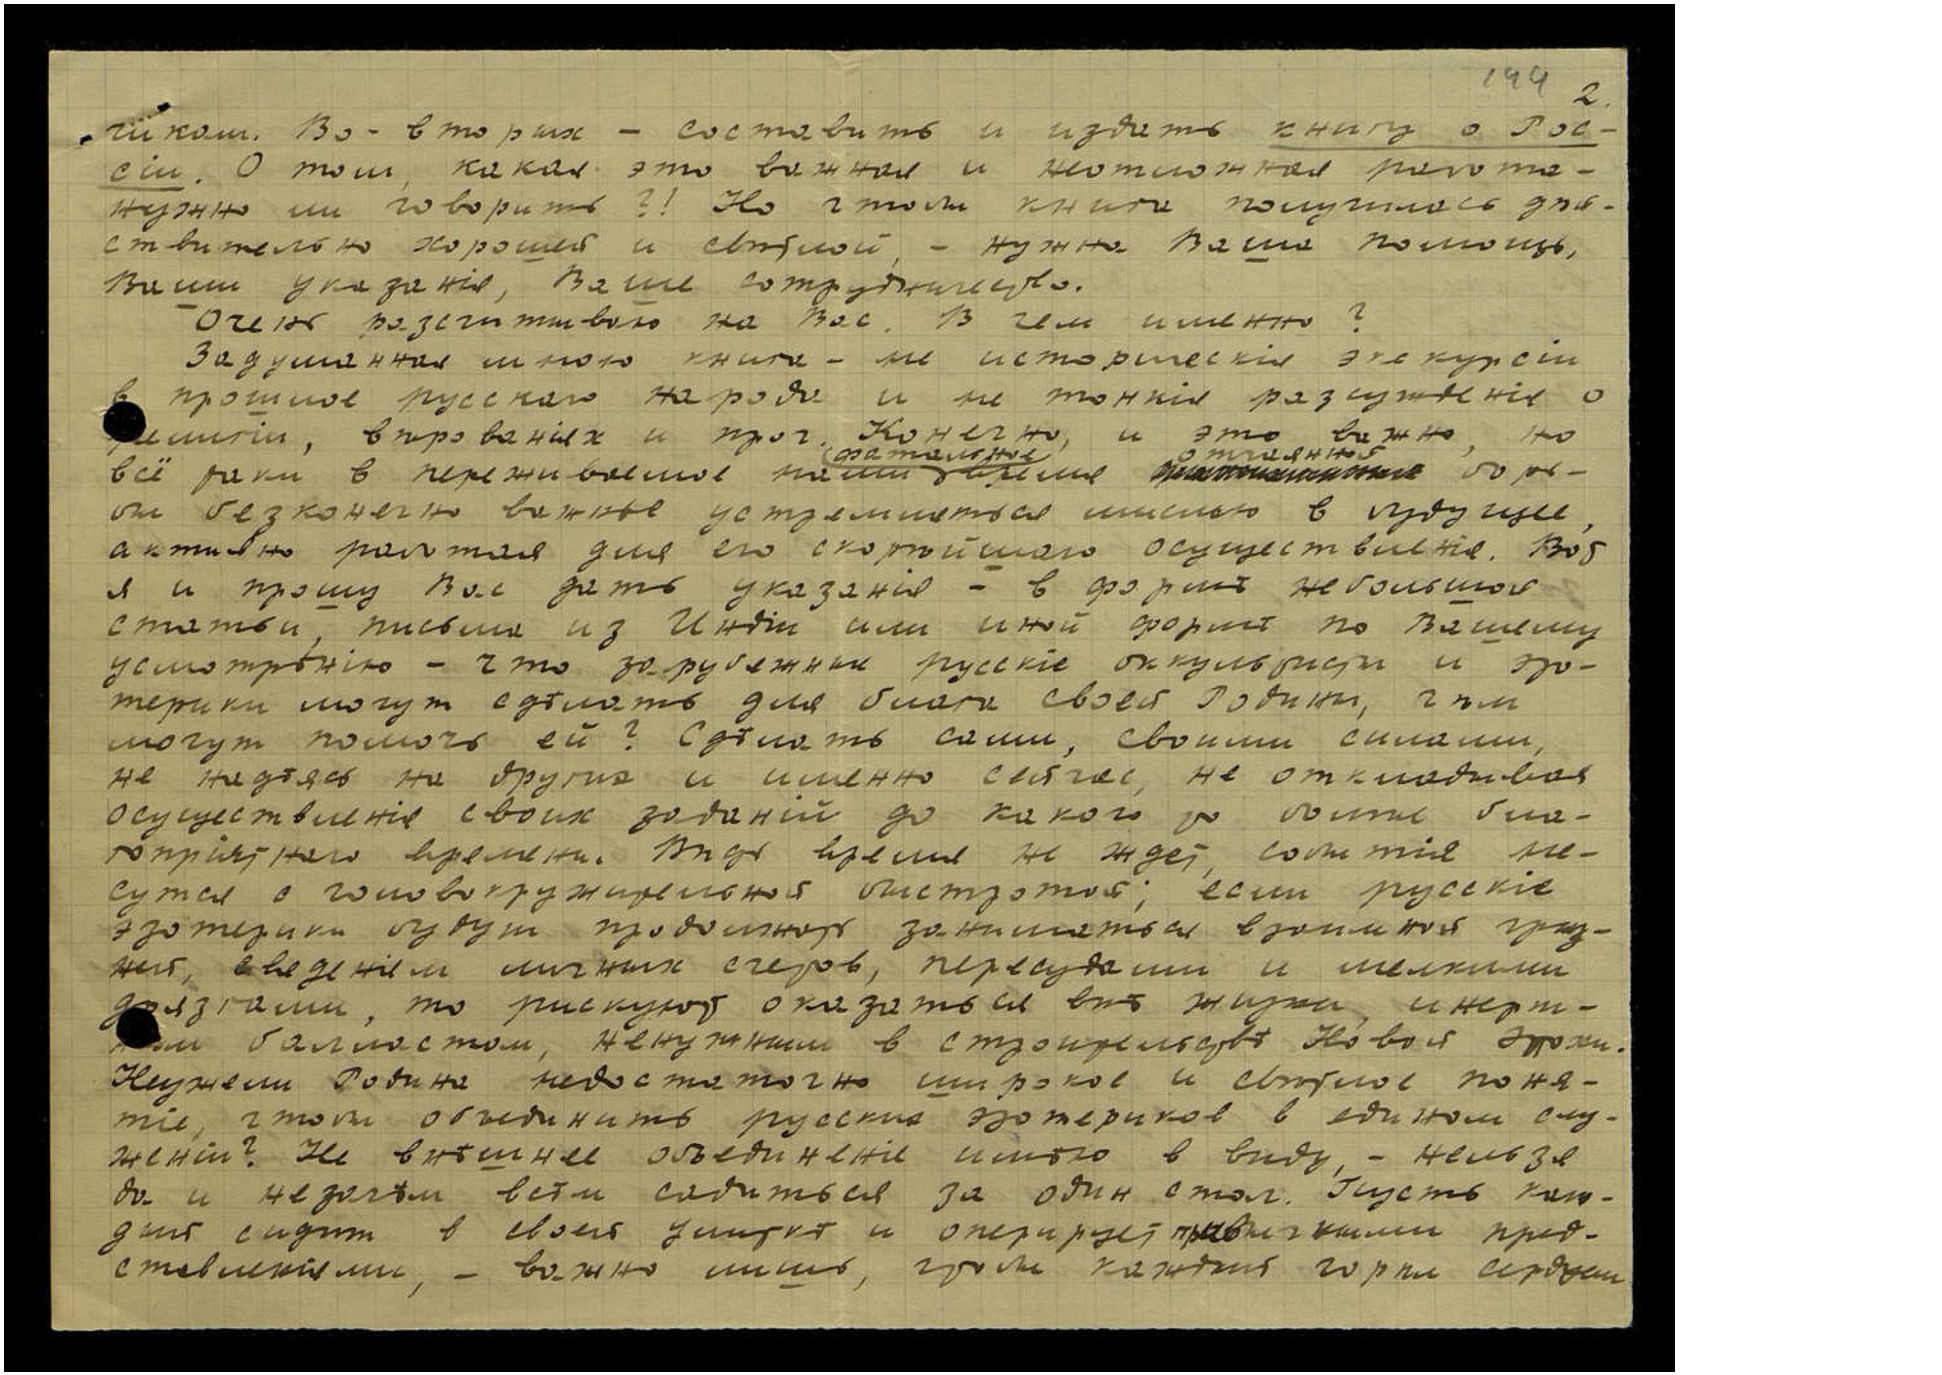 144 2.
чиком. Во-вторых – составить и издать книгу о Рос-
сіи. О том, какая это важная и неотложная работа –
нужно ли говорить?! Но чтобы книга получилась дѣй-
ствительно хорошей и свѣтлой, – нужна Ваша помощь,
Ваши указанія, Ваше сотрудничество.
Очень разсчитываю на Вас. В чем именно?
Задуманная мною книга – не историческія экскурсіи
в прошлое русскаго народа и не тонкія разсужденія о
религіи, вѣрованіях и проч. Конечно, и это важно, но
фатальное отчаянной
всё таки в переживаемое нами время борь-
бы безконечно важнѣе устремляться мыслью в будущее,
активно работая для его скорѣйшаго осуществленія. Вот
я и прошу Вас дать указанія – в формѣ небольшой
статьи, письма из Индіи или иной формѣ по Вашему
усмотрѣнію – что зарубежные русскіе оккультисты и эзо-
терики могут сдѣлать для блага своей Родины, чѣм
могут помочь ей? Сдѣлать сами, своими силами,
не надѣясь на других и именно сейчас, не откладывая
осуществленія своих заданій до какого то болѣе бла-
гопріятнаго времени. Вѣдь время не ждет, событія не-
сутся с головокружительной быстротой; если русскіе
эзотерики будут продолжать заниматься взаимной гры-
ней, сведеніем личных счетов, пересудами и мелкими
дрязгами, то рискуют оказаться внѣ жизни, инерт-
ным балластом, ненужным в строительствѣ Новой Эпохи.
Неужели Родина недостаточно широкое и свѣтлое поня-
тіе, чтобы объединить русских эзотериков в едином слу-
женіи? Не внѣшнее объединеніе имѣю в виду, – нельзя
да и незачѣм всѣм садиться за один стол. Пусть каж-
дый сидит в своей улиткѣ и оперирует привычными пред-
ставленіями, – важно лишь, чтобы каждый горѣл сердцем